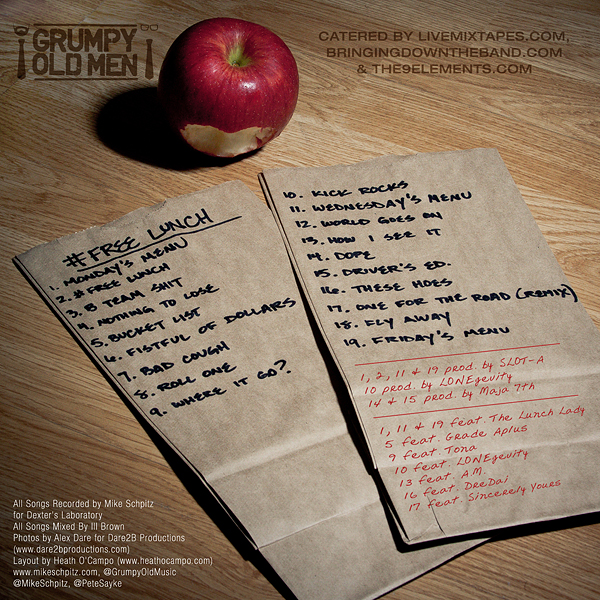 GRUMPY
OLD MEN
CATERED BY LIVEMIXTAPES.COM,
BRINGINGDOWNTHEBAND.COM
& THE9ELEMENTS.COM
#FREE LUNCH
1. MONDAY'S MENU
2. #FREE LUNCH
3. B TEAM SHIT
4. NOTHING TO LOSE
5. BUCKET LIST
6. FISTFUL OF DOLLARS
7. BAD COUGH
8. ROLL ONE
9. WHERE IT GO?
10. KICK ROCKS
11. WEDNESDAY'S MENU
12. WORLD GOES ON
13. HOW I SEE IT
14. DOPE
15. DRIVER'S ED.
16. THESE HOES
17. ONE FOR THE ROAD (REMIX)
18. FLY AWAY
19. FRIDAY'S MENU
1, 2, 11 & 19 prod. by SLOT-A
10 prod. by LONEgevity
14 & 15 prod. by Maja 7th
1, 11 & 19 feat. The Lunch Lady
5 feat. Grade Aplus
9 feat. Tona
10 feat. LONEgevity
13 feat. A.M.
16 feat. DreDai
17 feat. Sincerely Yours
All Songs Recorded by Mike Schpitz
for Dexter's Laboratory
All Songs Mixed By Ill Brown
Photos by Alex Dare for Dare2B Productions
(www.dare2bproductions.com)
Layout by Heath O'Campo (www.heathocampo.com)
www.mikeschpitz.com, @GrumpyOldMusic
@MikeSchpitz, @PeteSayke